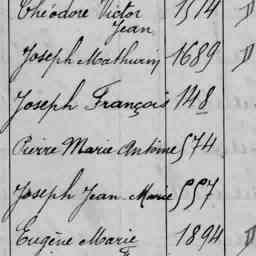 Théodore Victor 1514 D
Jean
Joseph Mathurin 1689 D
Joseph François 148
Pierre Marie Antoine 574
Joseph Jean Marie 557
Eugène Marie 1894 D